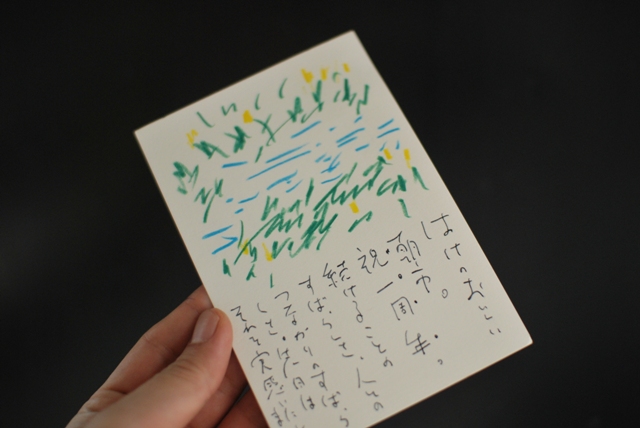 はけのおいしい
朝市。
祝・一・周・年・。
続けることの
すばらしさ、人との
つながりのすばら
しさ。は一日は
それを実感